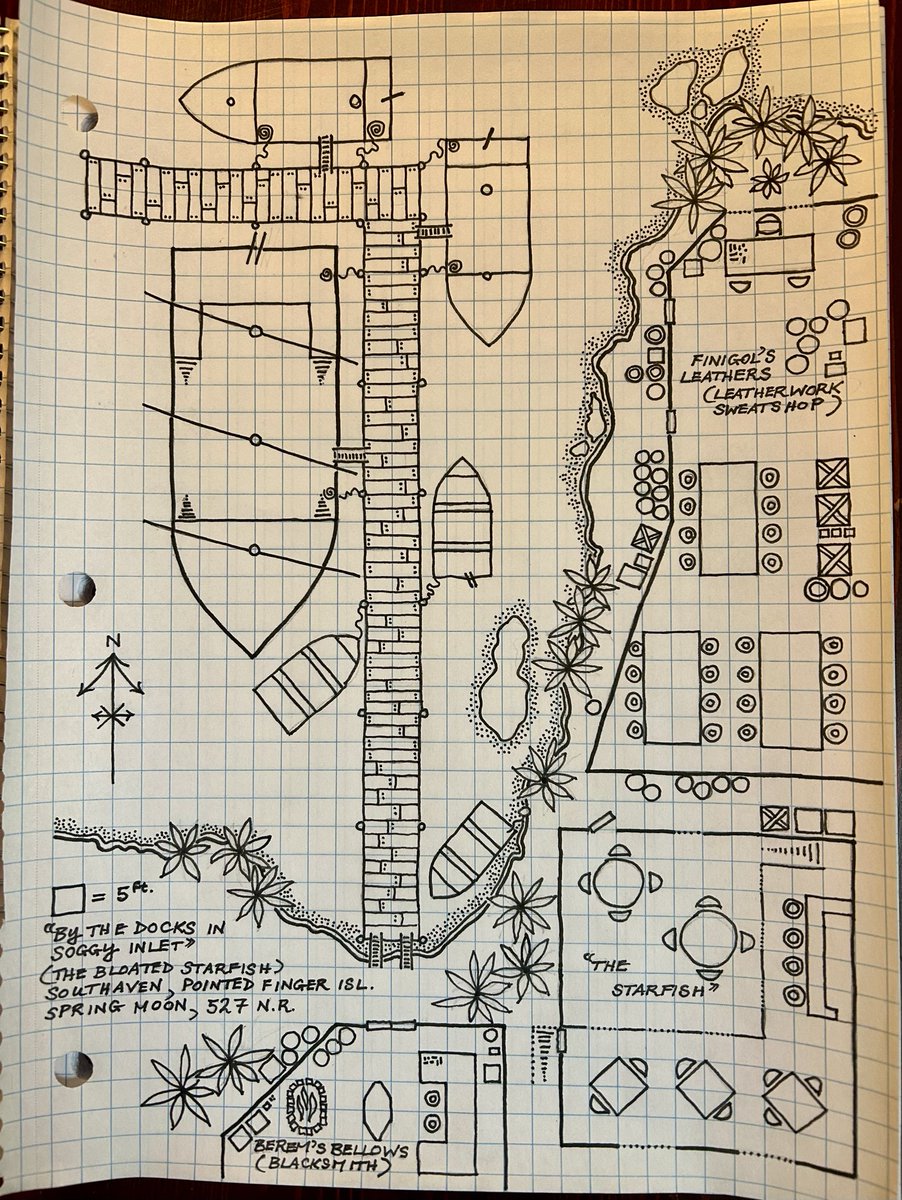 FINIGOL'S
LEATHERS
(LEATHERWORK
SWEATSHOP)
N
= 5 ft.
"BY THE DOCKS IN
SOGGY INLET"
(THE BLOATED STARFISH)
SOUTHAVEN, POINTED FINGER ISL.
SPRING MOON, 527 N.R.
"THE
STARFISH"
BEREM'S BELLOWS
(BLACKSMITH)